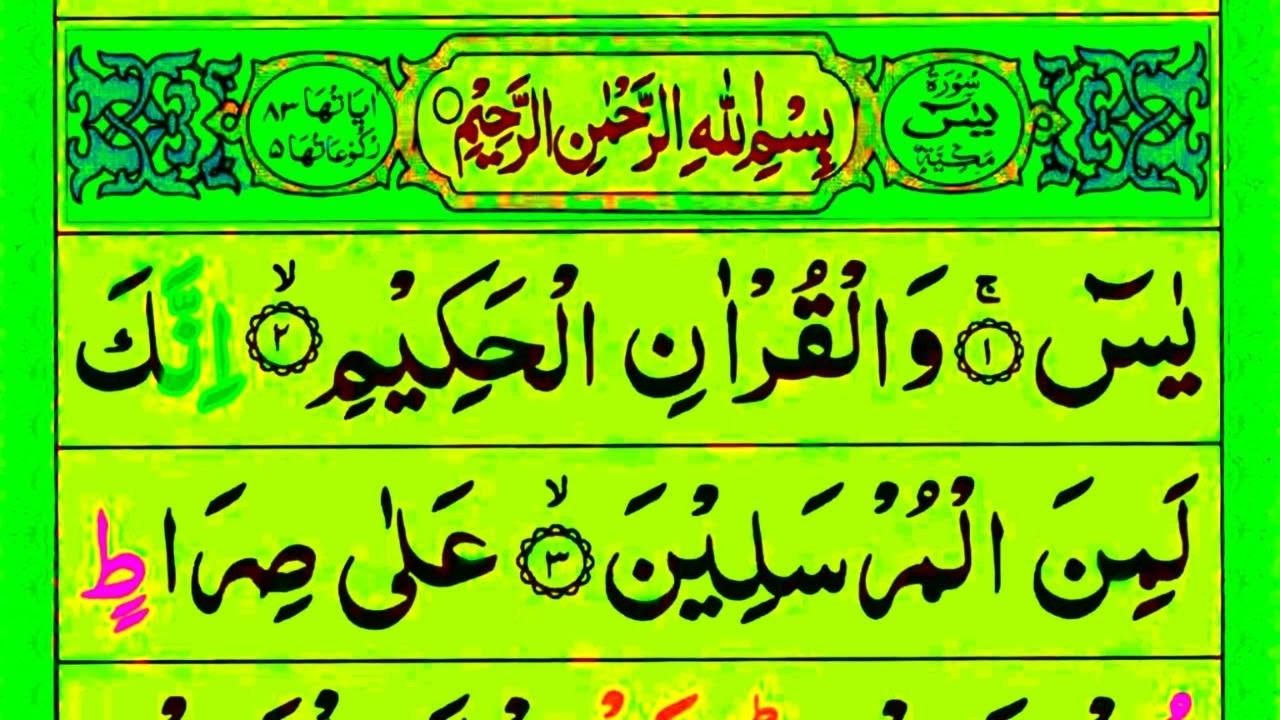 سُوْرَةُ يٰسٓ مَكِّيَّةٌ
بِسْمِ اللهِ الرَّحْمٰنِ الرَّحِيْمِ
اٰيَاتُهَا ٨٣
رُكُوْعَاتُهَا ٥
يٰسٓ ۚ ١ وَالْقُرْاٰنِ الْحَكِيْمِ ۙ ٢ اِنَّكَ
لَمِنَ الْمُرْسَلِيْنَ ۙ ٣ عَلٰى صِرَاطٍ